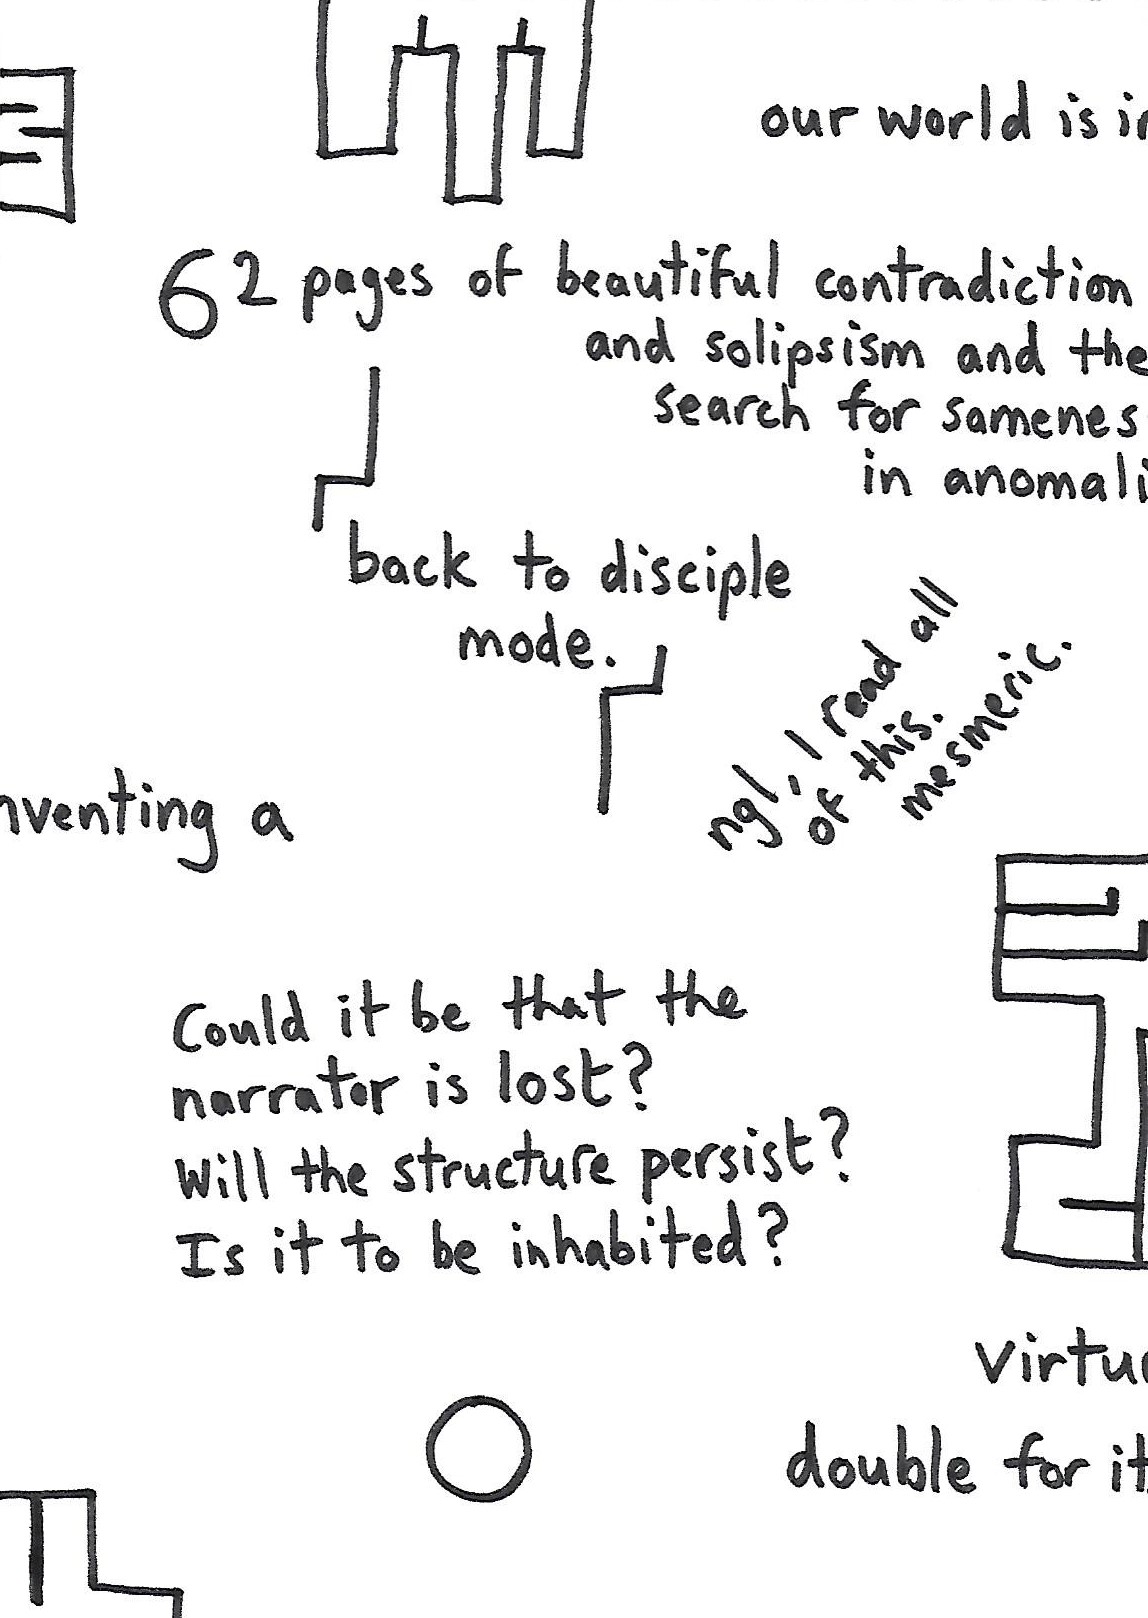 our world is in
62 pages of beautiful contradiction
and solipsism and the
search for samenes
in anomali
back to disciple
mode.
ngl, I read all
of this.
mesmeric.
nventing a
Could it be that the
narrator is lost?
Will the structure persist?
Is it to be inhabited?
virtu
double for it